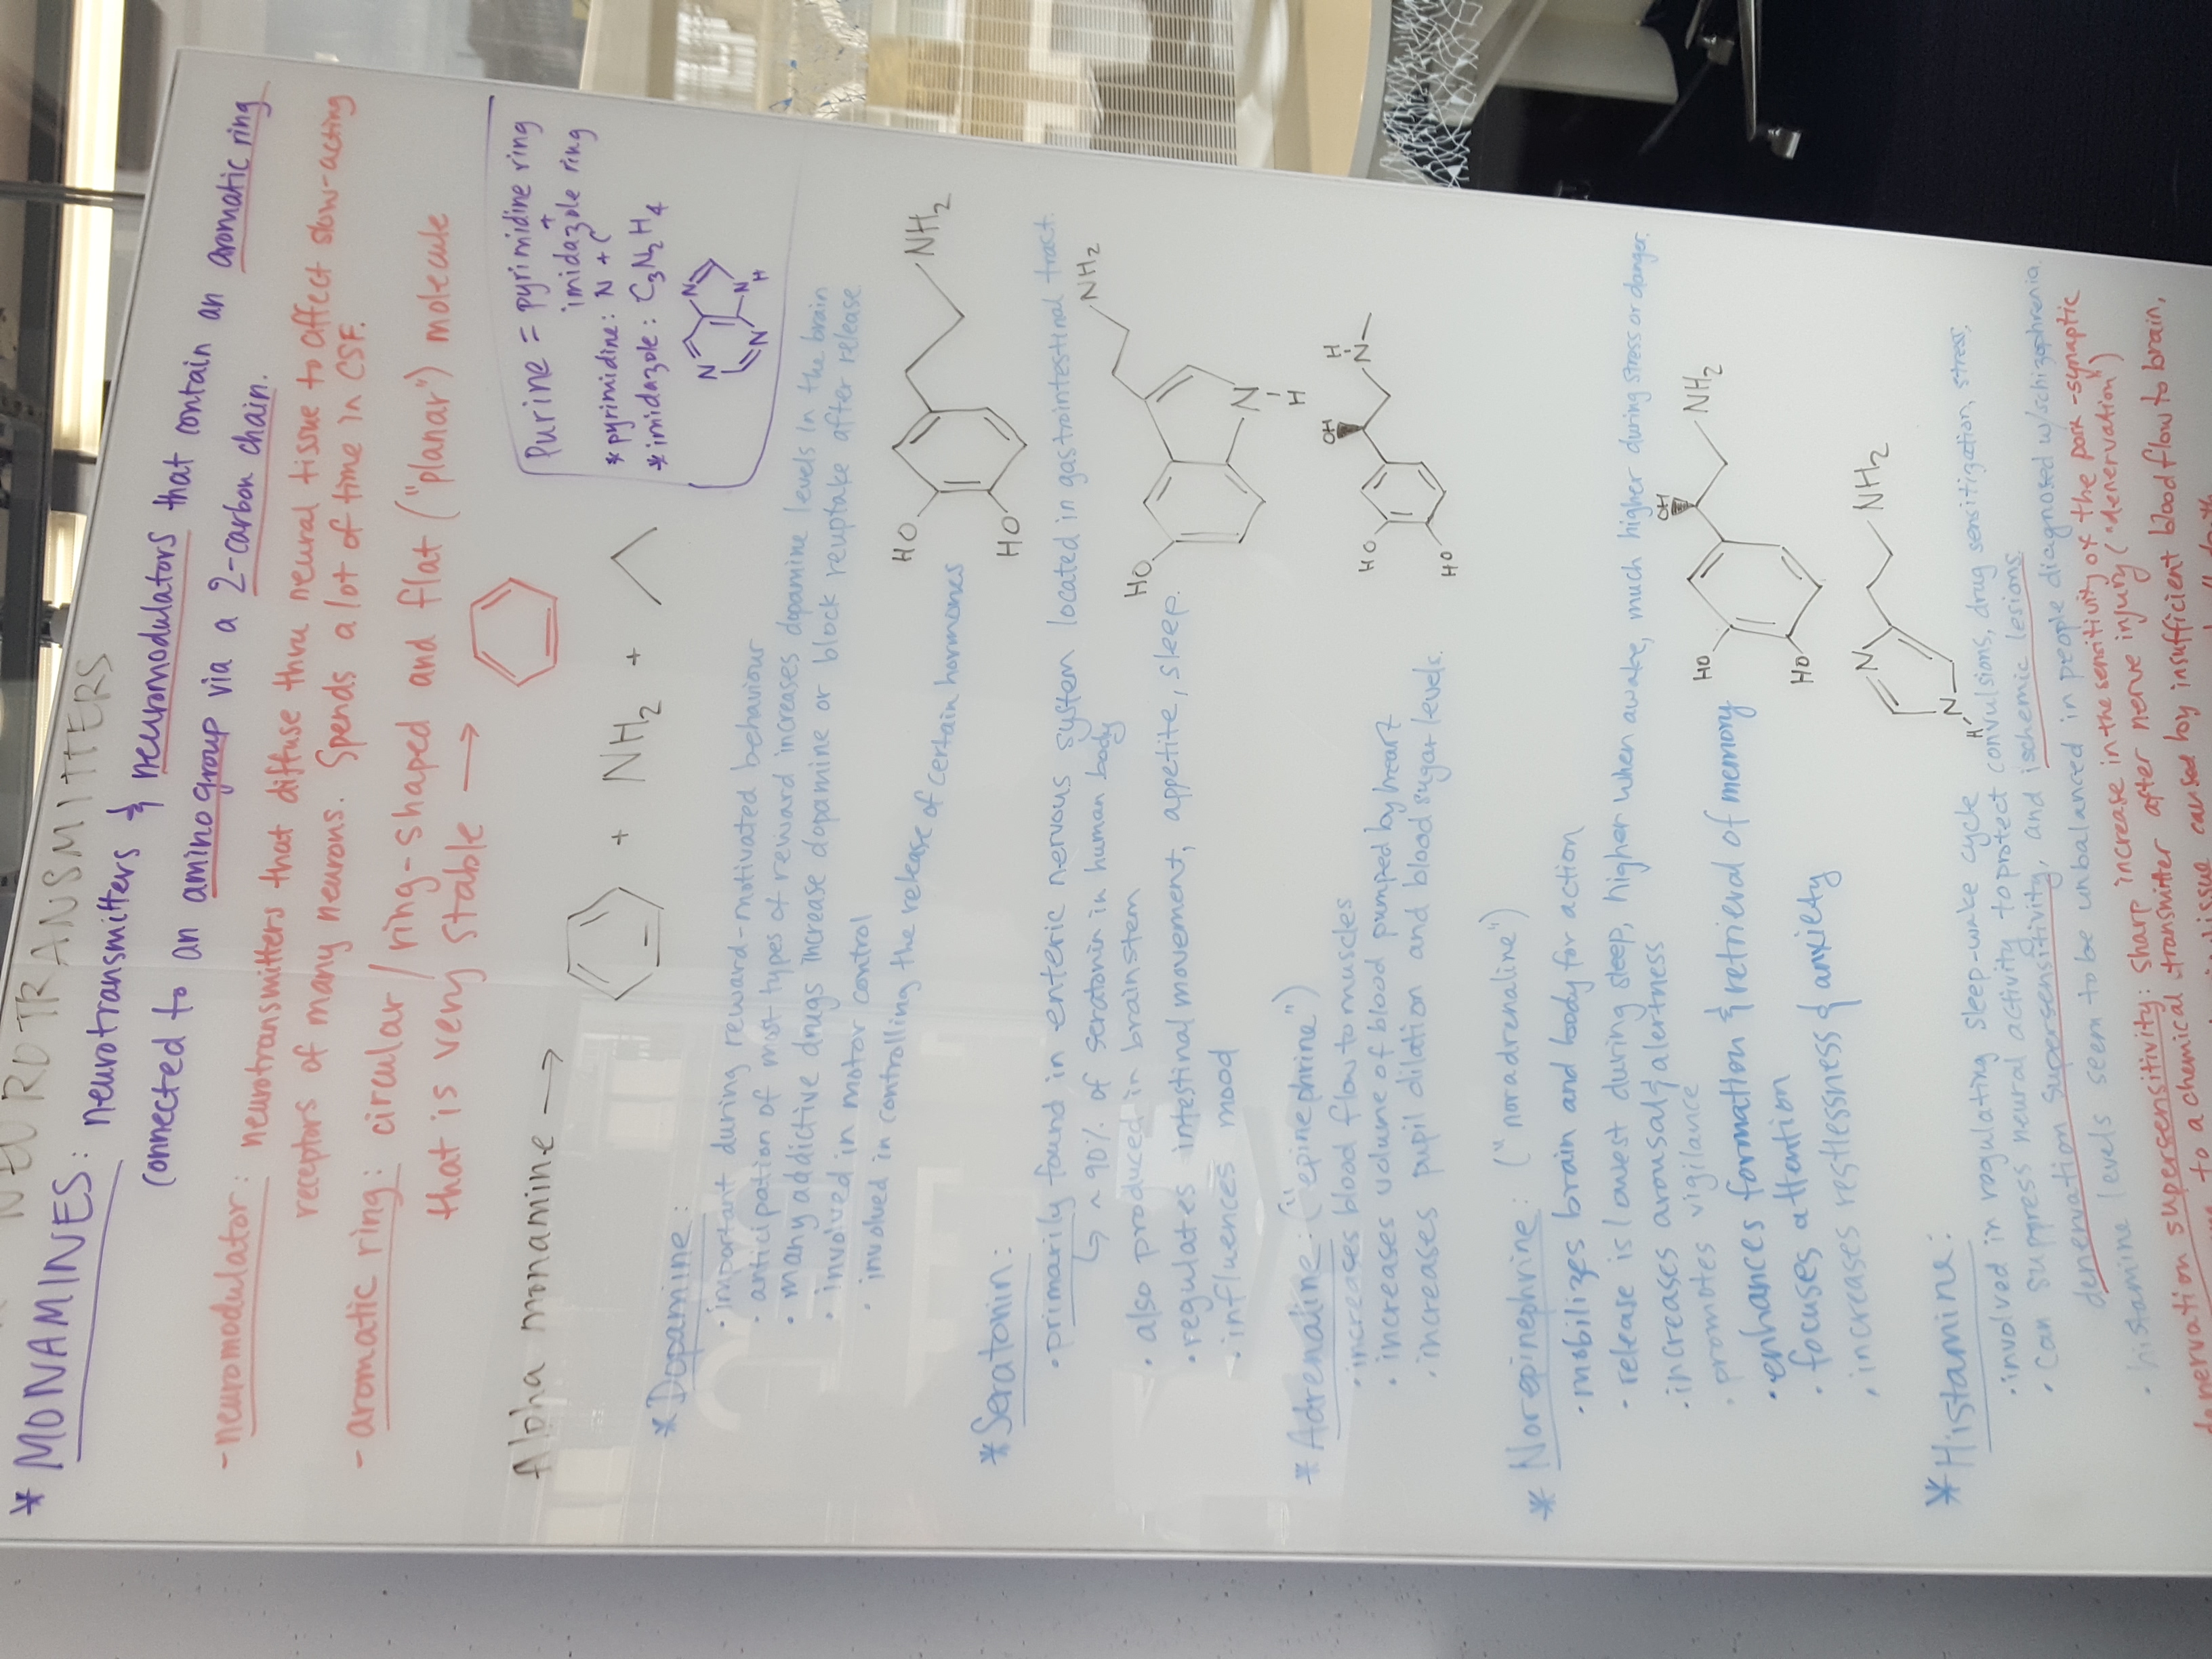 NEUROTRANSMITTERS
* MONAMINES: neurotransmitters & neuromodulators that contain an aromatic ring
connected to an amino group via a 2-carbon chain.
- neuromodulator: neurotransmitters that diffuse thru neural tissue to affect slow-acting
receptors of many neurons. Spends a lot of time in CSF.
- aromatic ring: circular / ring-shaped and flat ("planar") molecule
that is very stable →
Alpha monamine →
+ NH2 +
Purine = pyrimidine ring
+
imidazole ring
* pyrimidine: N + C
* imidazole: C3N2H4
N N
N N
H
* Dopamine:
• important during reward-motivated behaviour
• anticipation of most types of reward increases dopamine levels in the brain
• many addictive drugs increase dopamine or block reuptake after release
• involved in motor control
• involved in controlling the release of certain hormones
HO NH2
HO
* Seratonin:
• primarily found in enteric nervous system located in gastrointestinal tract.
↳ ~ 90% of seratonin in human body
• also produced in brainstem
• regulates intestinal movement, appetite, sleep.
• influences mood
NH2
HO
N
H
* Adrenaline: ("epinephrine")
• increases blood flow to muscles
• increases volume of blood pumped by heart
• increases pupil dilation and blood sugar levels.
OH H
HO N
HO
* Norepinephrine: ("noradrenaline")
• mobilizes brain and body for action
• release is lowest during sleep, higher when awake, much higher during stress or danger.
• increases arousal & alertness
• promotes vigilance
• enhances formation & retrieval of memory
• focuses attention
• increases restlessness & anxiety
OH
HO NH2
HO
N NH2
N
H
* Histamine:
• involved in regulating sleep-wake cycle
• can suppress neural activity to protect convulsions, drug sensitization, stress,
denervation supersensitivity, and ischemic lesions.
• histamine levels seem to be unbalanced in people diagnosed w/schizophrenia.
denervation supersensitivity: sharp increase in the sensitivity of the -synaptic
to a chemical transmitter after nerve injury ("denervation")
caused by insufficient blood flow to brain,